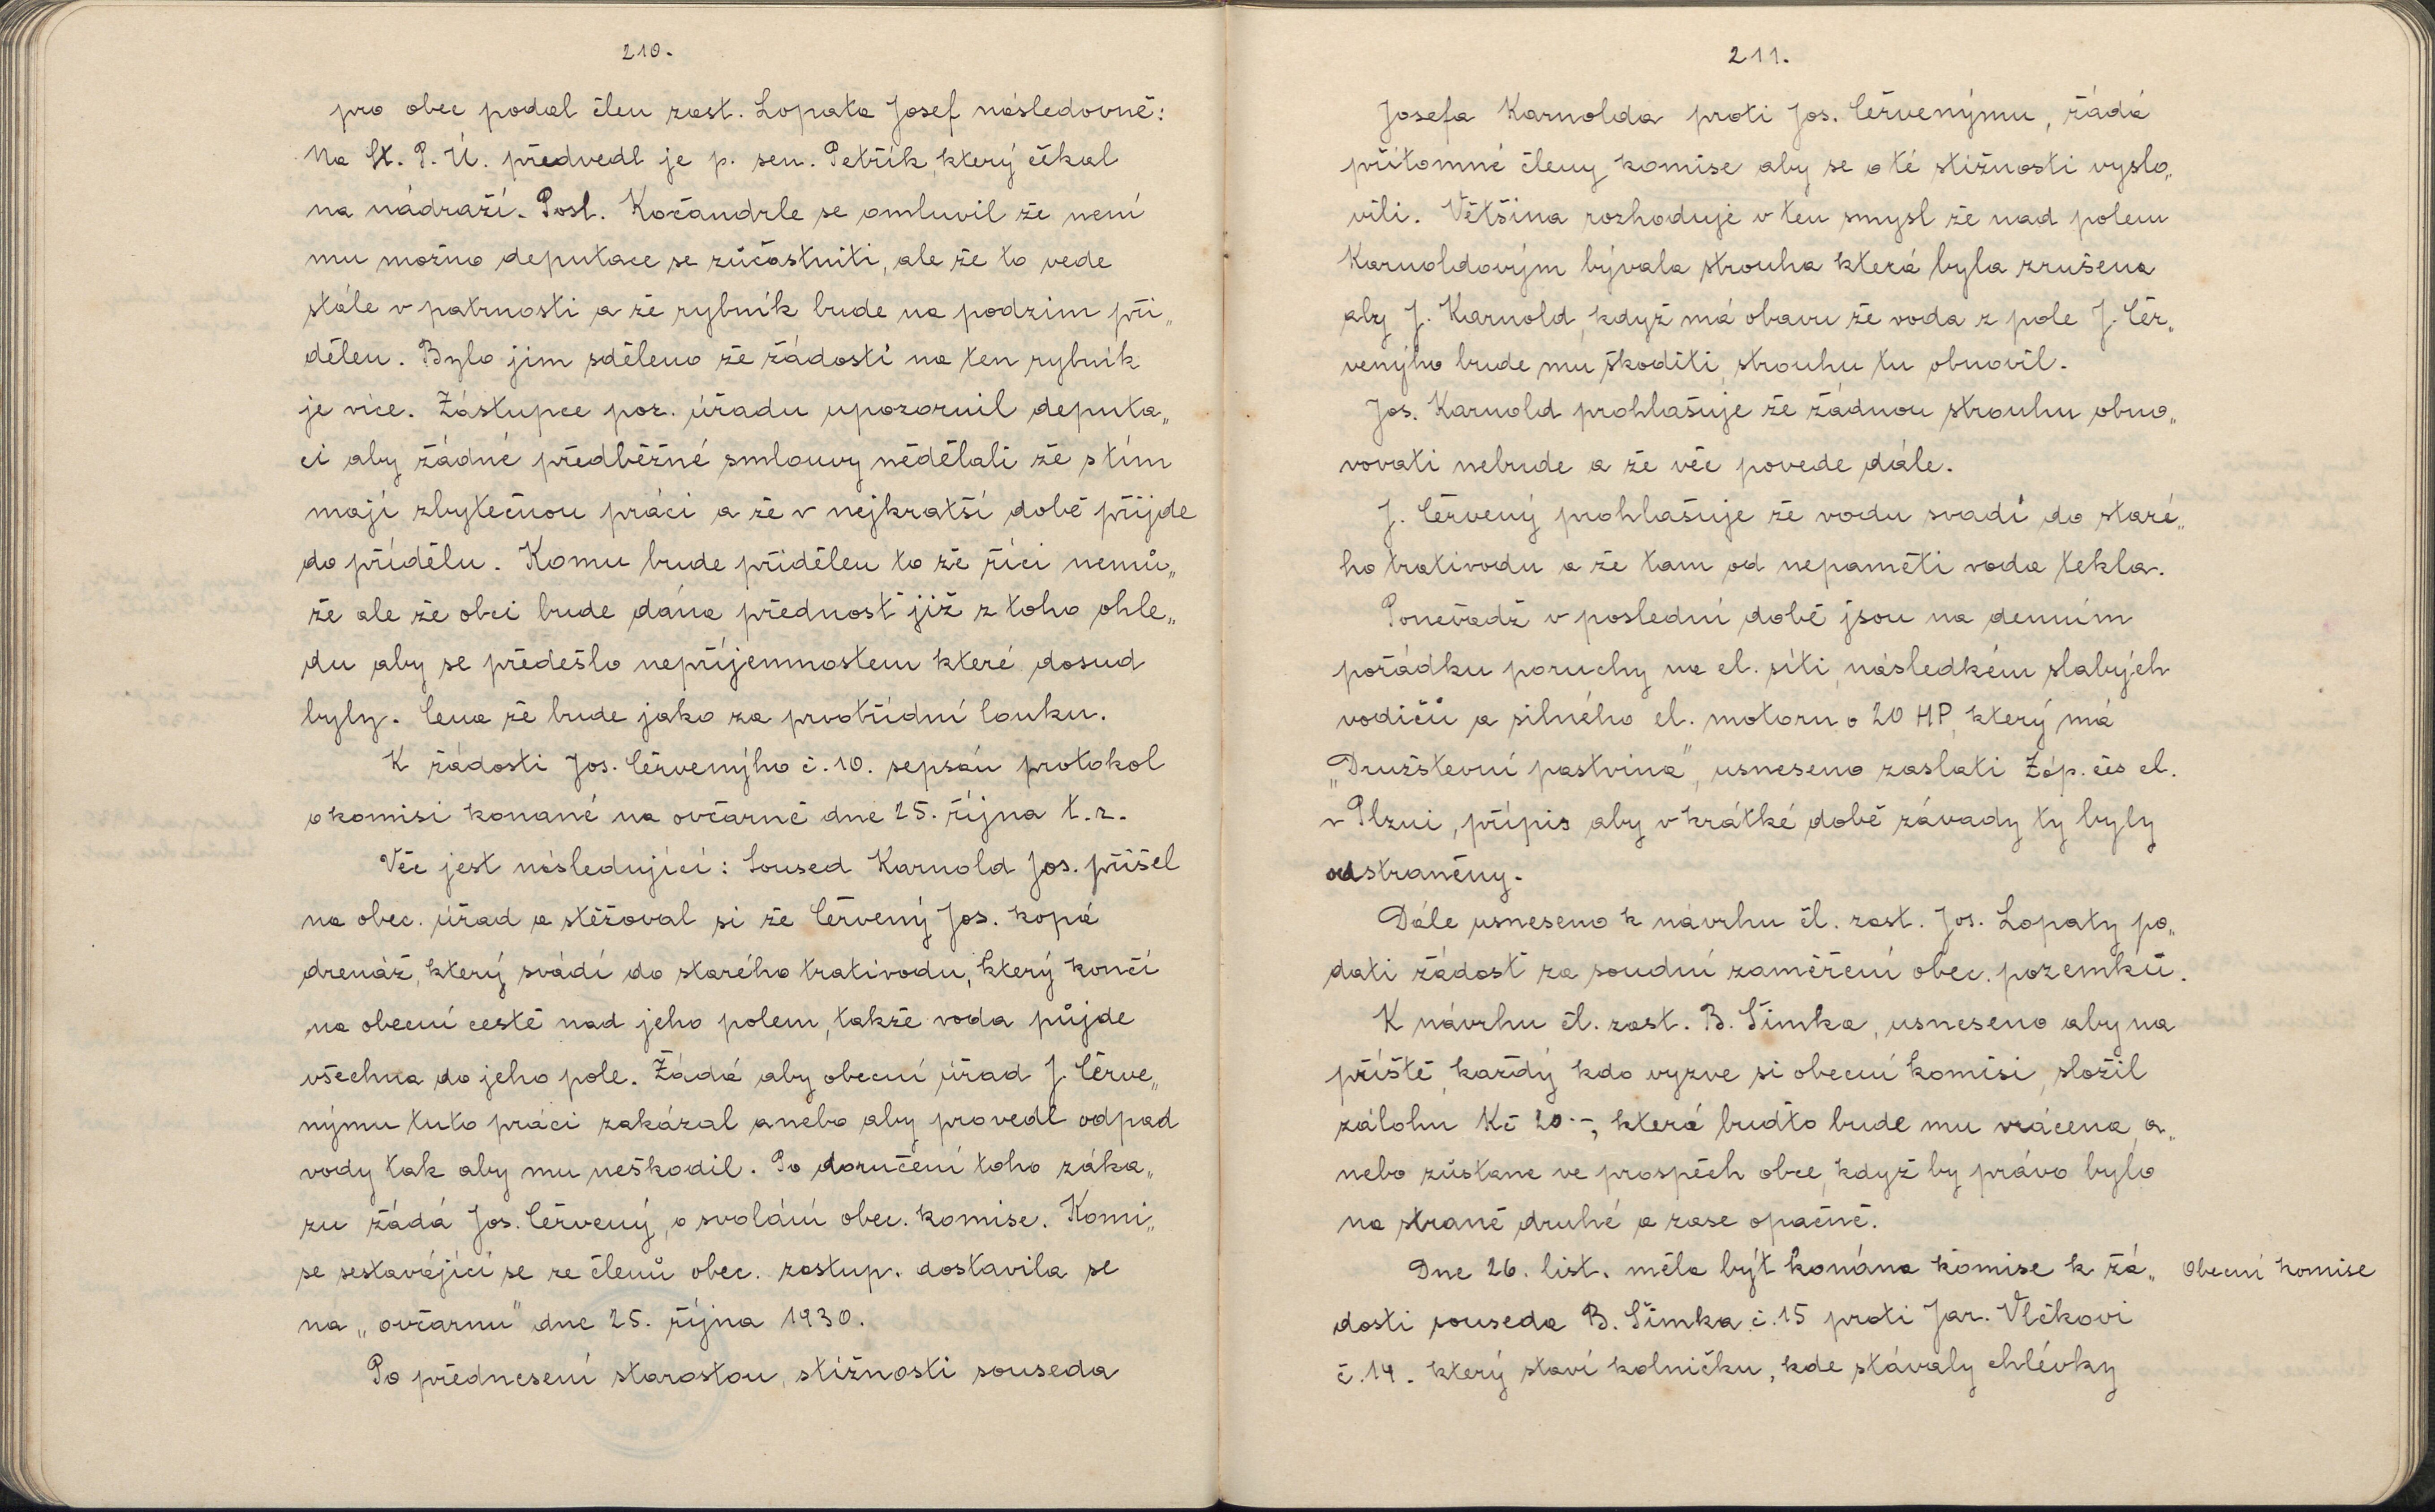 210.
pro obec podal člen zast. Lopata Josef následovně:
Na St. P. Ú. předvedl je p. sen. Petřík, který čekal
na nádraží. Posl. Kočandrle se omluvil že není
mu možno deputace se zůčastniti, ale že to vede
stále v patrnosti a že rybník bude na podzim při„
dělen. Bylo jim sděleno že žádostí na ten rybník
je více. Zástupce poz. úřadu upozornil deputa„
ci aby žádné předběžné smlouvy nědělali že s tím
mají zbytečnou práci a že v nejkratší době přijde
do přídělu. Komu bude přidělen to že říci nemů„
že ale že obci bude dána přednost již z toho ohle„
du aby se předešlo nepříjemnostem které dosud
byly. Cena že bude jako za prvotřídní louku.
K žádosti Jos. Červenýho č. 10. sepsán protokol
o komisi konané na ovčárně dne 25. října t. r.
Věc jest následující: Soused Karnold Jos. přišel
na obec. úřad a stěžoval si že Červený Jos. kopá
drenáž, který svádí do starého trativodu, který končí
na obecní cestě nad jeho polem, takže voda půjde
všechna do jeho pole. Žádá aby obecní úřad J. Červe„
nýmu tuto práci zakázal anebo aby provedl odpad
vody tak aby mu neškodil. Po doručení toho záka„
zu žádá Jos. Červený, o svolání obec. komise. Komi„
se sestavájící se ze členů obec. zastup. dostavila se
na „ovčárnu" dne 25. října 1930.
Po přednesení starostou, stížnosti souseda
211.
Josefa Karnolda proti Jos. Červenýmu, žádá
přítomné členy komise aby se o té stížnosti vyslo„
vili. Většina rozhoduje v ten smysl že nad polem
Karnoldovým bývala strouha která byla zrušena
aby J. Karnold, když má obavu že voda z pole J. Čer„
venýho bude mu škoditi, strouhu tu obnovil.
Jos. Karnold prohlašuje že žádnou strouhu obno„
vovati nebude a že věc povede dále.
J. Červený prohlašuje že vodu svádí do staré„
ho trativodu a že tam od nepaměti voda tekla.
Poněvadž v poslední době jsou na denním
pořádku poruchy na el. síti, následkém slabých
vodičů a silného el. motoru o 20 HP, který má
„Družstevní pastvina", usneseno zaslati Záp. čes el.
v Plzni, přípis aby v krátké době závady ty byly
odstraněny.
Dále usneseno k návrhu čl. zast. Jos. Lopaty po„
dati žádost za soudní zaměření obec. pozemků.
K návrhu čl. zast. B. Šimka, usneseno aby na
příště, každý kdo vyzve si obecní komisi, složil
zálohu Kč 20.–, která buďto bude mu vrácena, a„
nebo zůstane ve prospěch obce, když by právo bylo
na straně druhé a zase opačně.
Dne 26. list. měla být konána komise k žá„
Obecní komise
dosti souseda B. Šimka č. 15 proti Jar. Vlčkovi
č. 14. který staví kolničku, kde stávaly chlévky